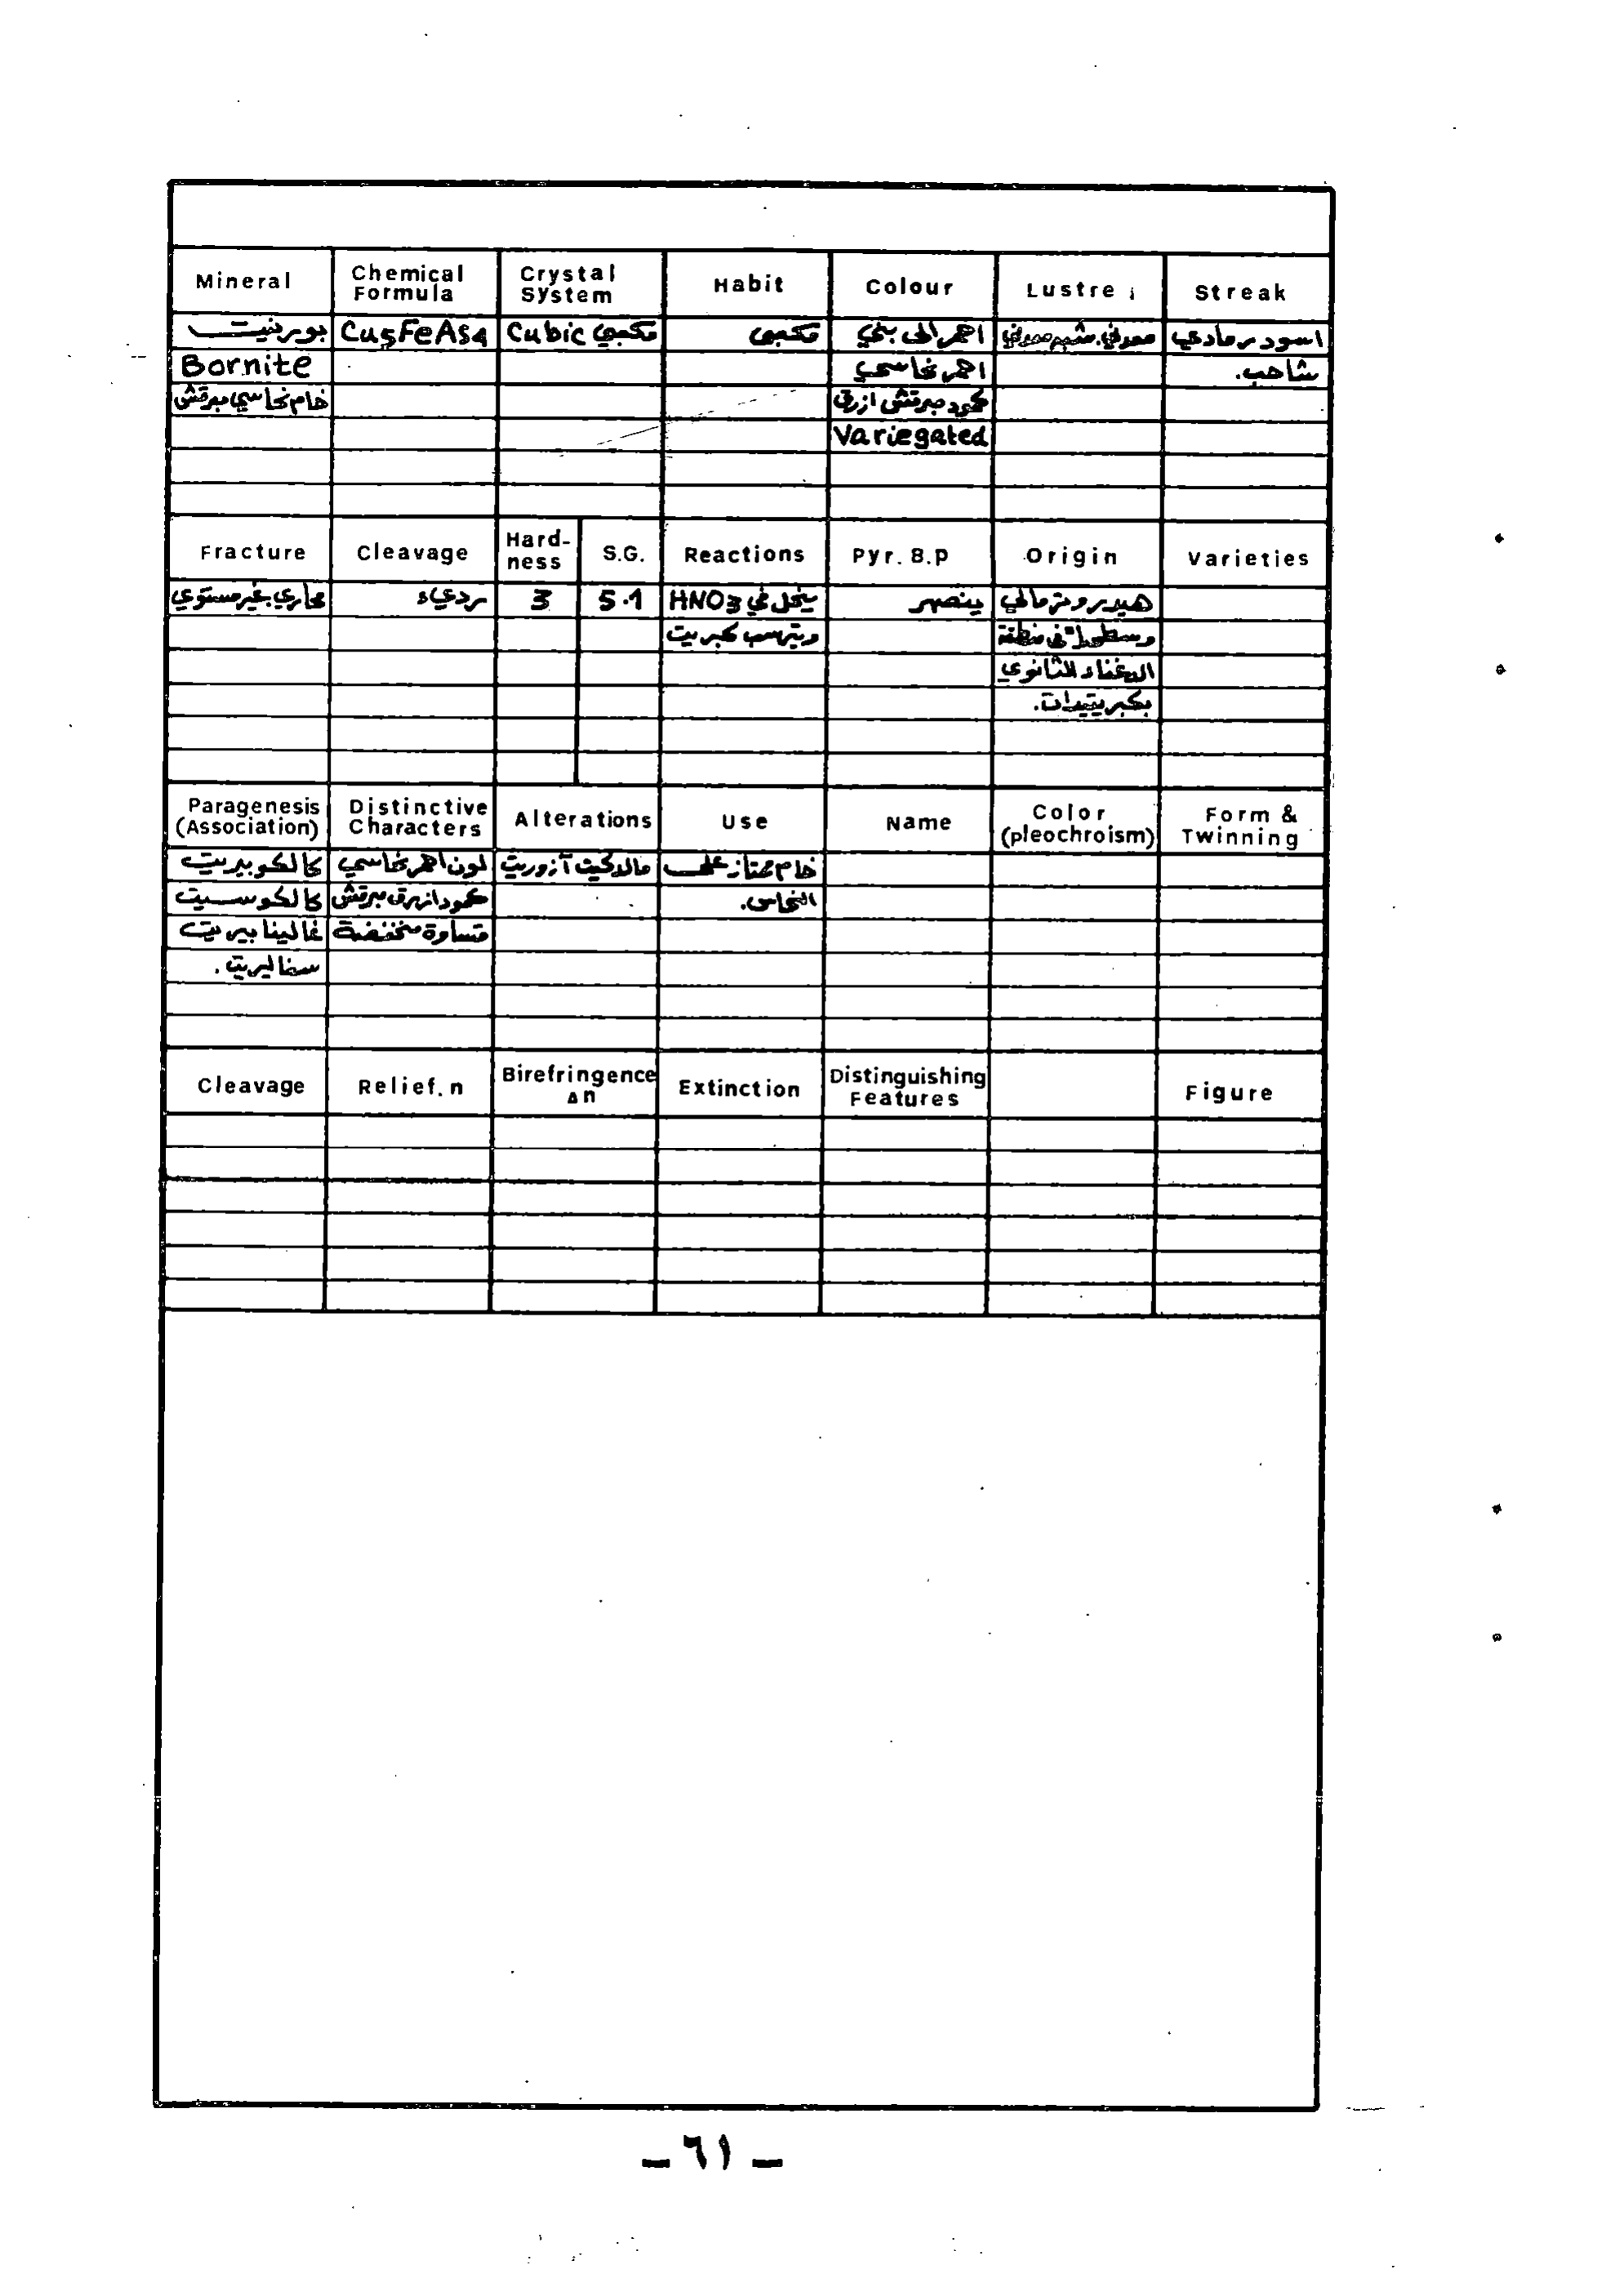 Mineral Chemical Formula Crystal System Habit Colour Lustre Streak
بورنيت Cu5FeAs4 Cubic مكعبي مكعبي احمر الى بني معدني شبه معدني اسود رمادي
Bornite احمر نحاسي شاحب.
خام نحاسي مبرقش كمود مبرقش ازرق
Variegated
Fracture Cleavage Hard-ness S.G. Reactions Pyr. B.p Origin Varieties
محاري غير مستوي رديء 3 5.1 ينحل في HNO3 ينصهر هيدروترمالي
ويترسب كبريت في منطقة
الثانوي
بكبريتيدات.
Paragenesis (Association) Distinctive Characters Alterations Use Name Color (pleochroism) Form & Twinning
كالكوبيريت لون احمر نحاسي مالاكيت آزوريت خام ممتاز على
كالكوسيت كمود ازرق مبرقش النحاس.
غالينا بيريت قساوة منخفضة
سفاليريت.
Cleavage Relief.n Birefringence Δn Extinction Distinguishing Features Figure
_ ٦١ _